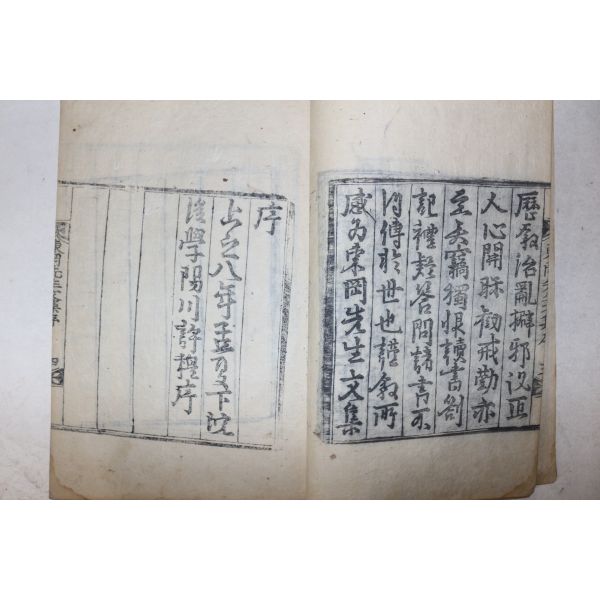 歷敘治亂擗邪說正
人心開昧勸戒勤亦
至矣竊獨恨讀書劄
記禮疑答問諸書不
得傳於世也謹敘所
感為東岡先生文集
序
上之八年孟夏下浣
後學陽川許穆序